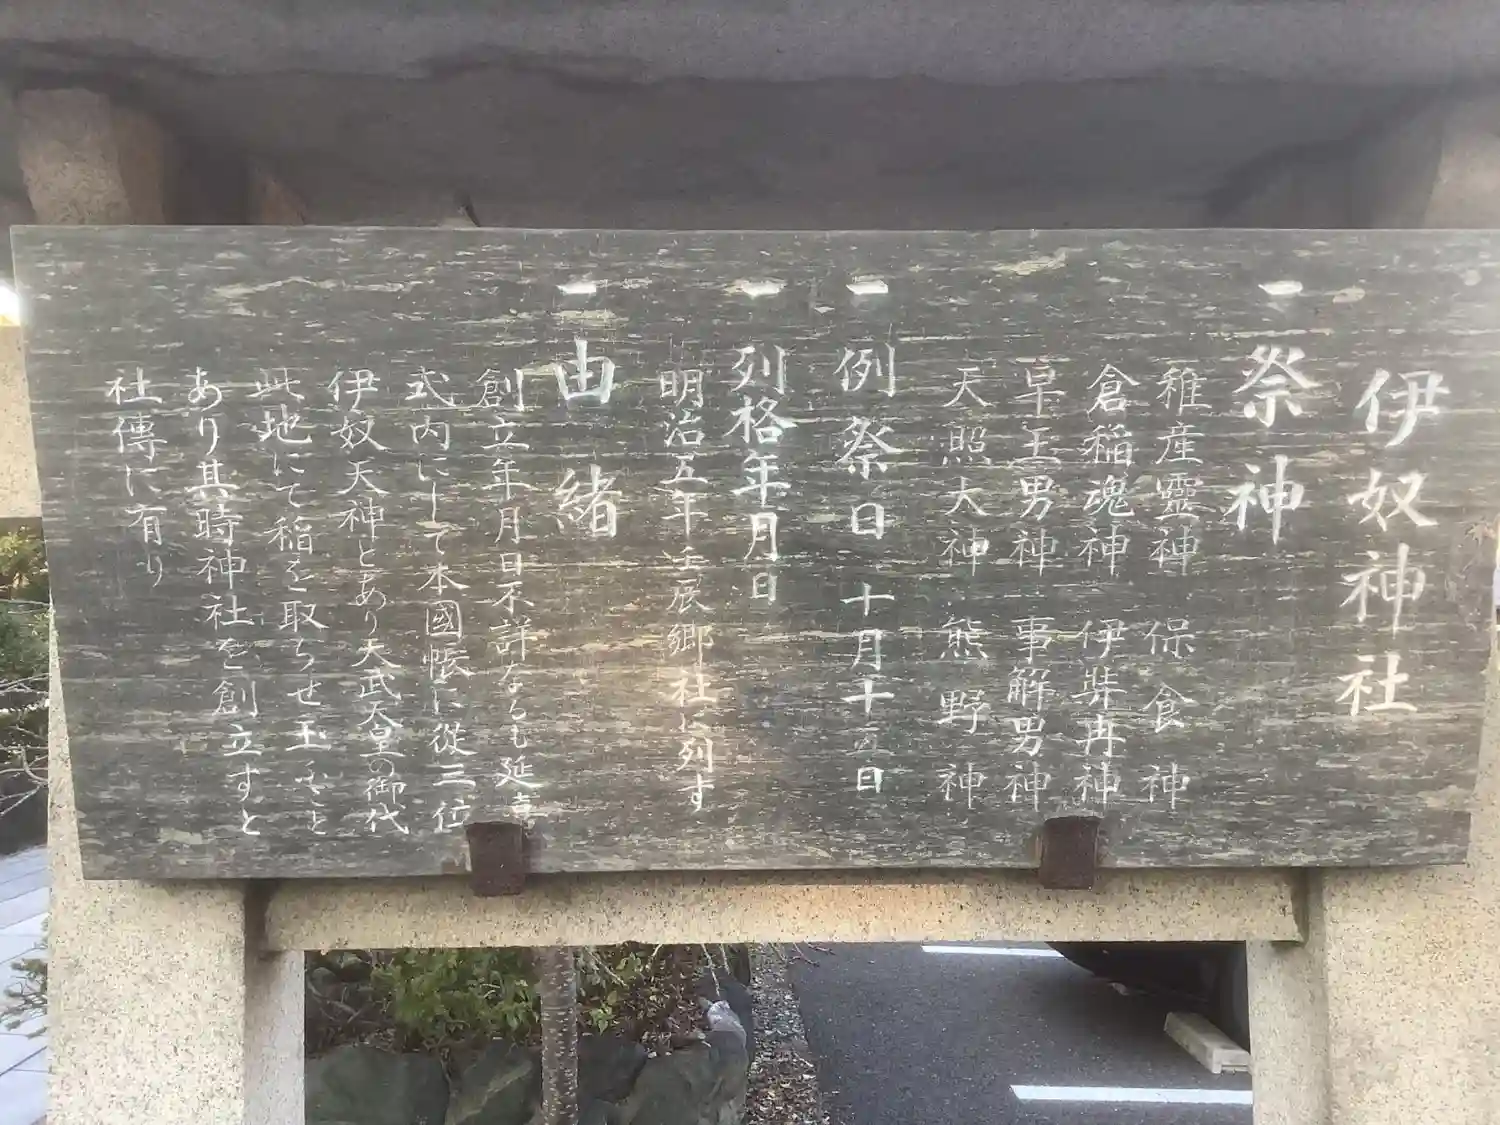 伊奴神社
一 祭神
稚産靈神 保食神
倉稲魂神 伊弉冉神
早玉男神 事解男神
天照大神 熊野神
一 例祭日 十月十五日
一 列格年月日
明治五年壬辰郷社に列す
一 由緒
創立年月日不詳なるも延喜
式内にして本國帳に従三位
伊奴天神とあり天武天皇の御代
此地にて稲を取らせ玉ふと
あり其時神社を創立すと
社傳に有り